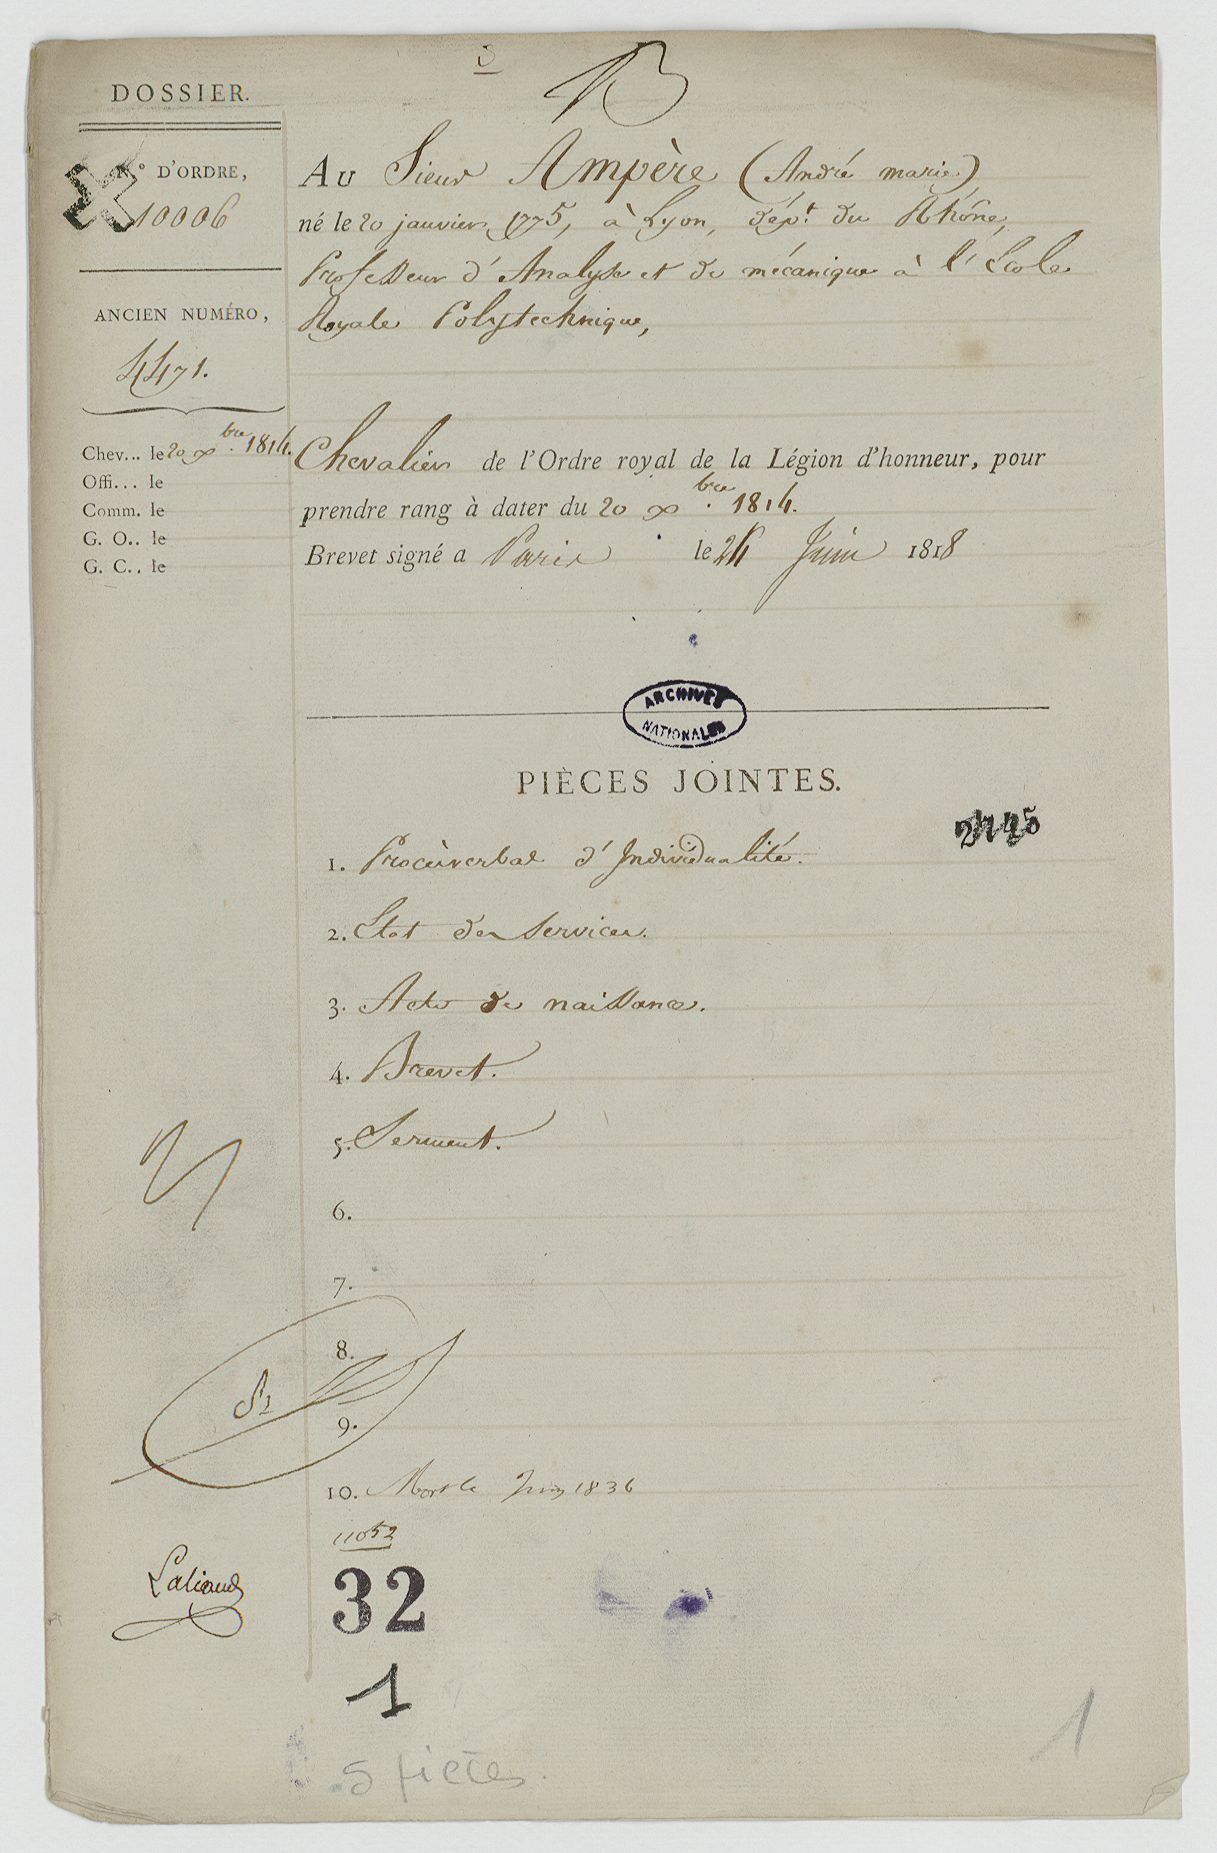 DOSSIER.
N° D'ORDRE,
10006
ANCIEN NUMÉRO,
4471.
Chev... le 20 xbre 1814.
Offi... le
Comm. le
G. O.. le
G. C.. le
Au Sieur Ampère (André marie)
né le 20 janvier 1775, à Lyon, dépt. du Rhône,
Professeur d'Analyse et de mécanique à l'École
Royale Polytechnique,
Chevalier de l'Ordre royal de la Légion d'honneur, pour
prendre rang à dater du 20 xbre 1814.
Brevet signé a Paris le 24 Juin 1818
ARCHIVES
NATIONALES
PIÈCES JOINTES.
1. Procèsverbal d'Individualité.
2. Etat des Services.
3. Acte de naissance.
4. Brevet.
5. Serment.
6.
7.
8.
9.
10. Mort le Juin 1836
11052
32
1
5 pièces.
1